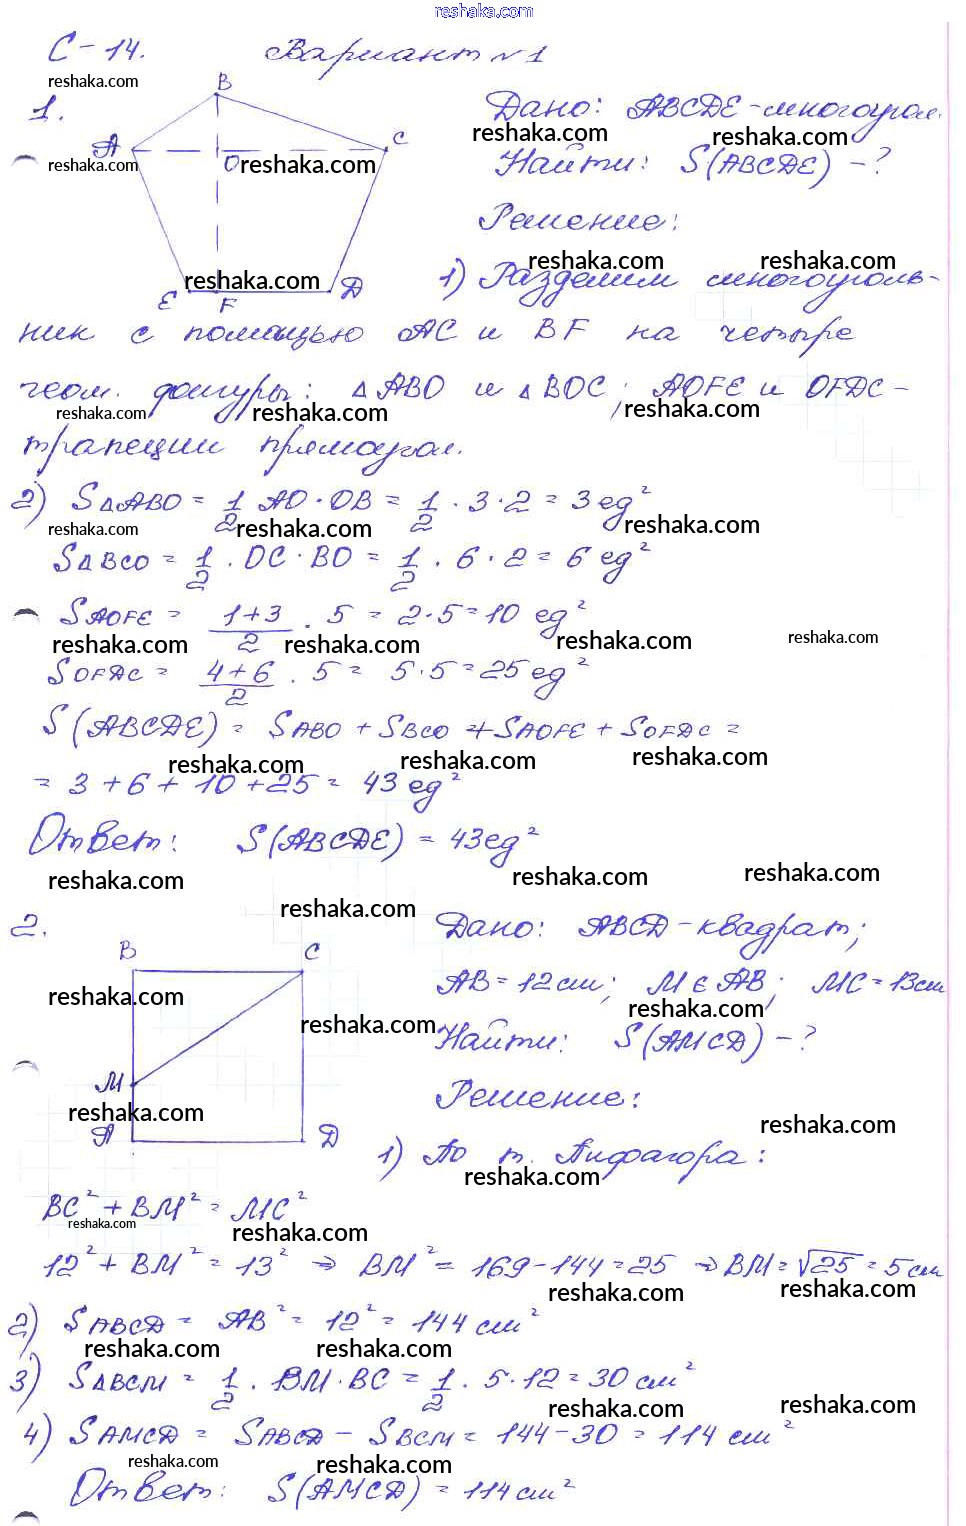 reshaka.com
С-14. Вариант №1
1. Дано: ABCDE - многоугол.
Найти: S(ABCDE) - ?
Решение:
1) Разделим многоуголь-
ник с помощью AC и BF на четыре
геом. фигуры: △ABO и △BOC; AOFE и OFDC -
трапеции прямоугол.
B
A
C
O
E
F
D
2) S△ABO = 1/2 AO · OB = 1/2 · 3 · 2 = 3 ед²
S△BCO = 1/2 · OC · BO = 1/2 · 6 · 2 = 6 ед²
SAOFE = (1+3)/2 · 5 = 2·5 = 10 ед²
SOFDC = (4+6)/2 · 5 = 5·5 = 25 ед²
S(ABCDE) = SABO + SBCO + SAOFE + SOFDC =
= 3 + 6 + 10 + 25 = 43 ед²
Ответ: S(ABCDE) = 43 ед²
2. Дано: ABCD - квадрат;
AB = 12 см; M ∈ AB; MC = 13 см
Найти: S(AMCD) - ?
Решение:
B
C
M
A
D
1) По т. Пифагора:
BC² + BM² = MC²
12² + BM² = 13² ⇒ BM² = 169 - 144 = 25 ⇒ BM = √25 = 5 см
2) SABCD = AB² = 12² = 144 см²
3) S△BCM = 1/2 · BM · BC = 1/2 · 5 · 12 = 30 см²
4) SAMCD = SABCD - SBCM = 144 - 30 = 114 см²
Ответ: S(AMCD) = 114 см²